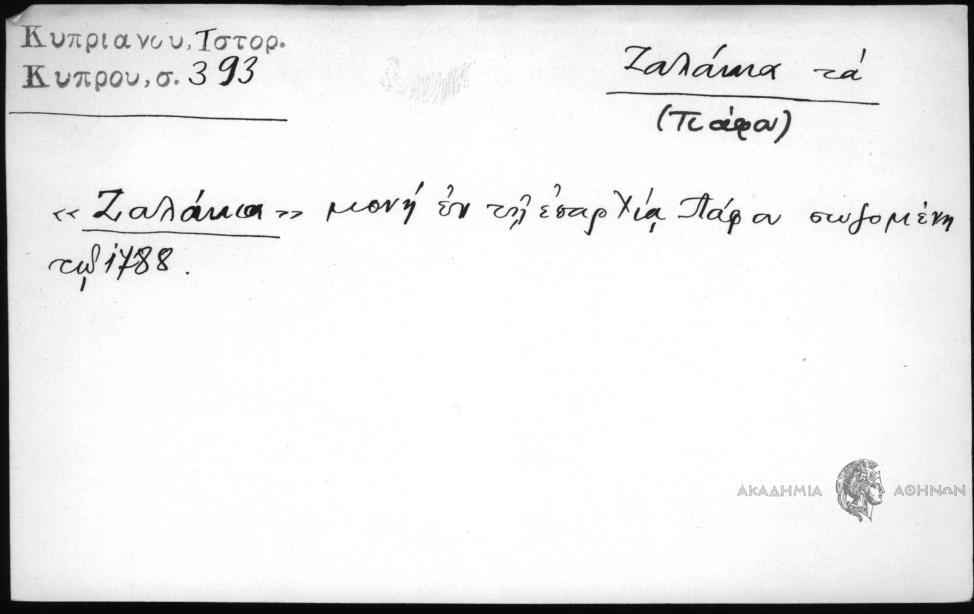 Κυπριανου, Ἱστορ.
Κυπρου, σ. 393
Ζαλάκια τά
(Πάφου)
« Ζαλάκια » μονή ἐν τῇ ἐπαρχίᾳ Πάφου σωζομένη
τῷ 1788.
ΑΚΑΔΗΜΙΑ ΑΘΗΝΩΝ